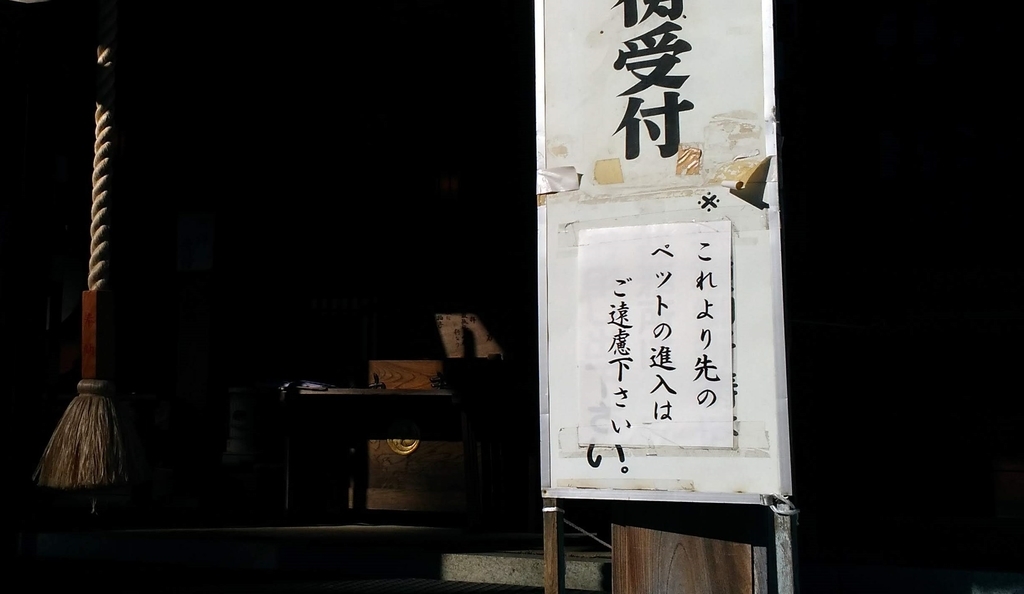 受付
※
これより先の
ペットの進入は
ご遠慮下さい
い。